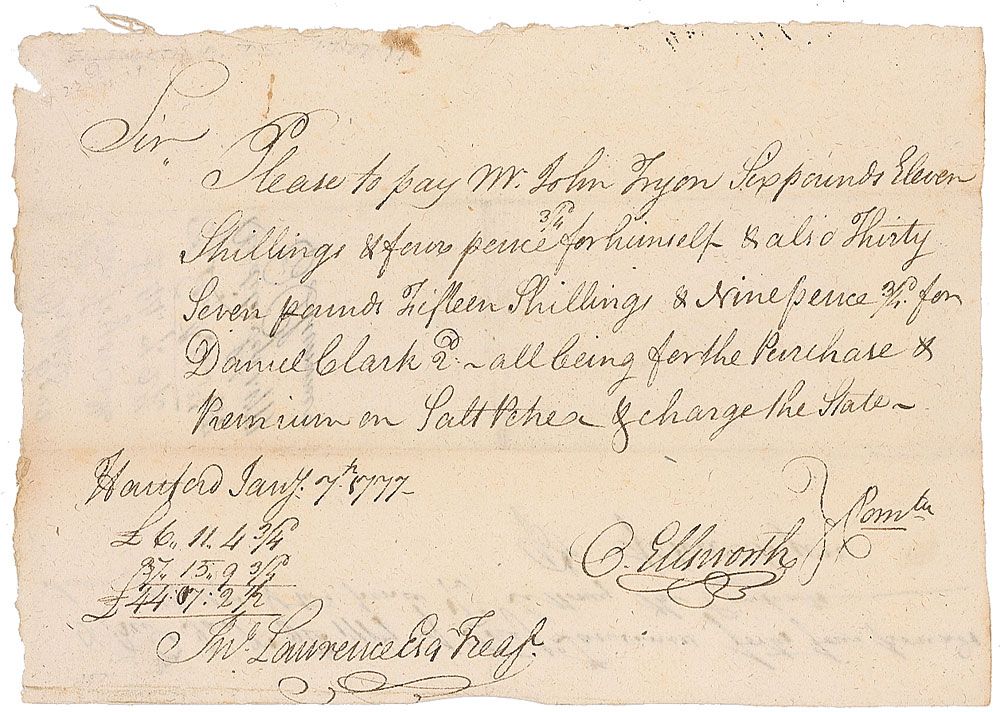 Sir
Please to pay Mr. John Tryon Six pounds Eleven
Shillings & four pence 3/4d for himself & also Thirty
Seven pounds Fifteen Shillings & Nine pence 3/4d for
Daniel Clark 2d. - all being for the Purchase &
Premium on Salt Petre & charge the State -
Hartford Jany. 7th 1777 -
£ 6,, 11. 4 3/4d
37,, 15,, 9 3/4d
£ 44: 07: 2 1/2
O. Ellsworth } Comtee
Jno. Lawrence Esq Treasr.